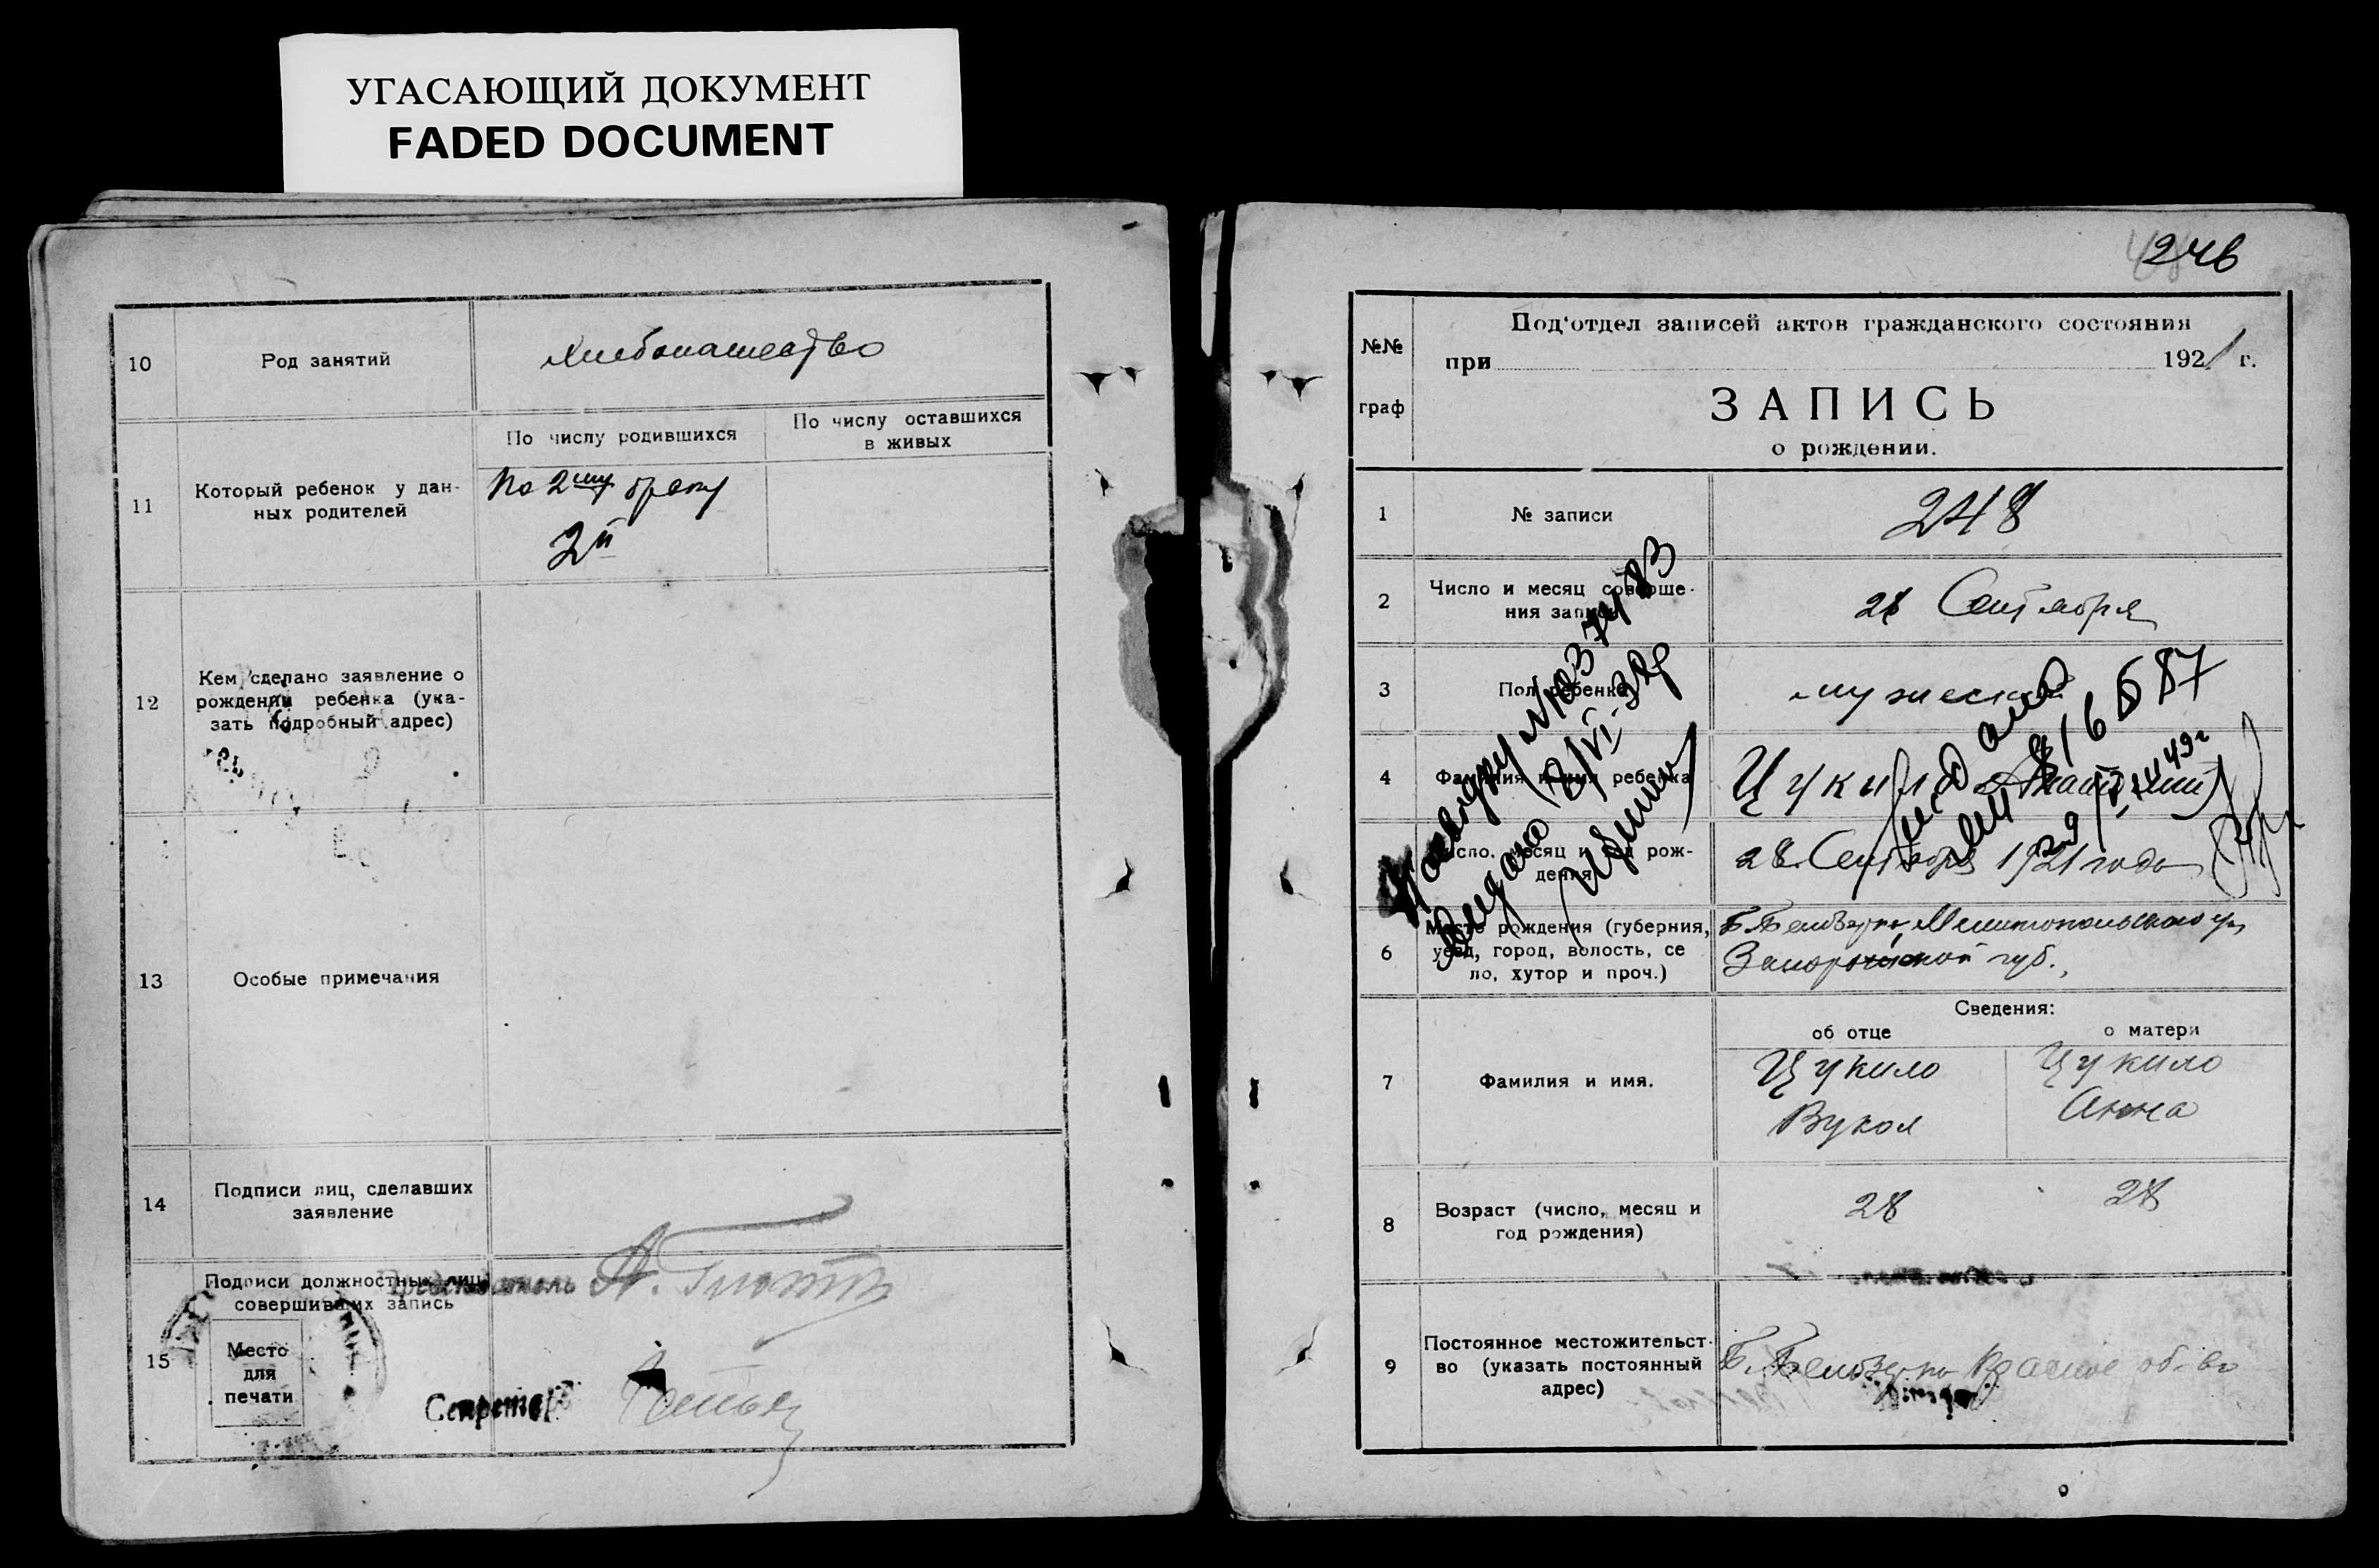 УГАСАЮЩИЙ ДОКУМЕНТ
FADED DOCUMENT
10
Род занятий
Хлебопашество
11
Который ребенок у дан-
ных родителей
По числу родившихся
По числу оставшихся
в живых
По 2му браку
2й
12
Кем сделано заявление о
рождении ребенка (ука-
зать подробный адрес)
13
Особые примечания
14
Подписи лиц, сделавших
заявление
15
Подписи должностных лиц,
совершивших запись
Место
для
печати
Председатель А.
Секретарь
246
№№
граф
Под'отдел записей актов гражданского состояния
при 1921 г.
ЗАПИСЬ
о рождении.
1
№ записи
248
2
Число и месяц соверше-
ния записи
28 Сентября
3
Пол ребенка
мужеский
4
Фамилия и имя ребенка
Цукило
Число, месяц и год рож-
дения
28 Сентября 1921 года
6
Место рождения (губерния,
уезд, город, волость, се
ло, хутор и проч.)
Б. Белозерка, Мелитопольского у.
Запорожской губ.
Сведения:
об отце
о матери
7
Фамилия и имя.
Цукило
Вукол
Цукило
Анна
8
Возраст (число, месяц и
год рождения)
28
28
9
Постоянное местожительст-
во (указать постоянный
адрес)
Б. Белозерка